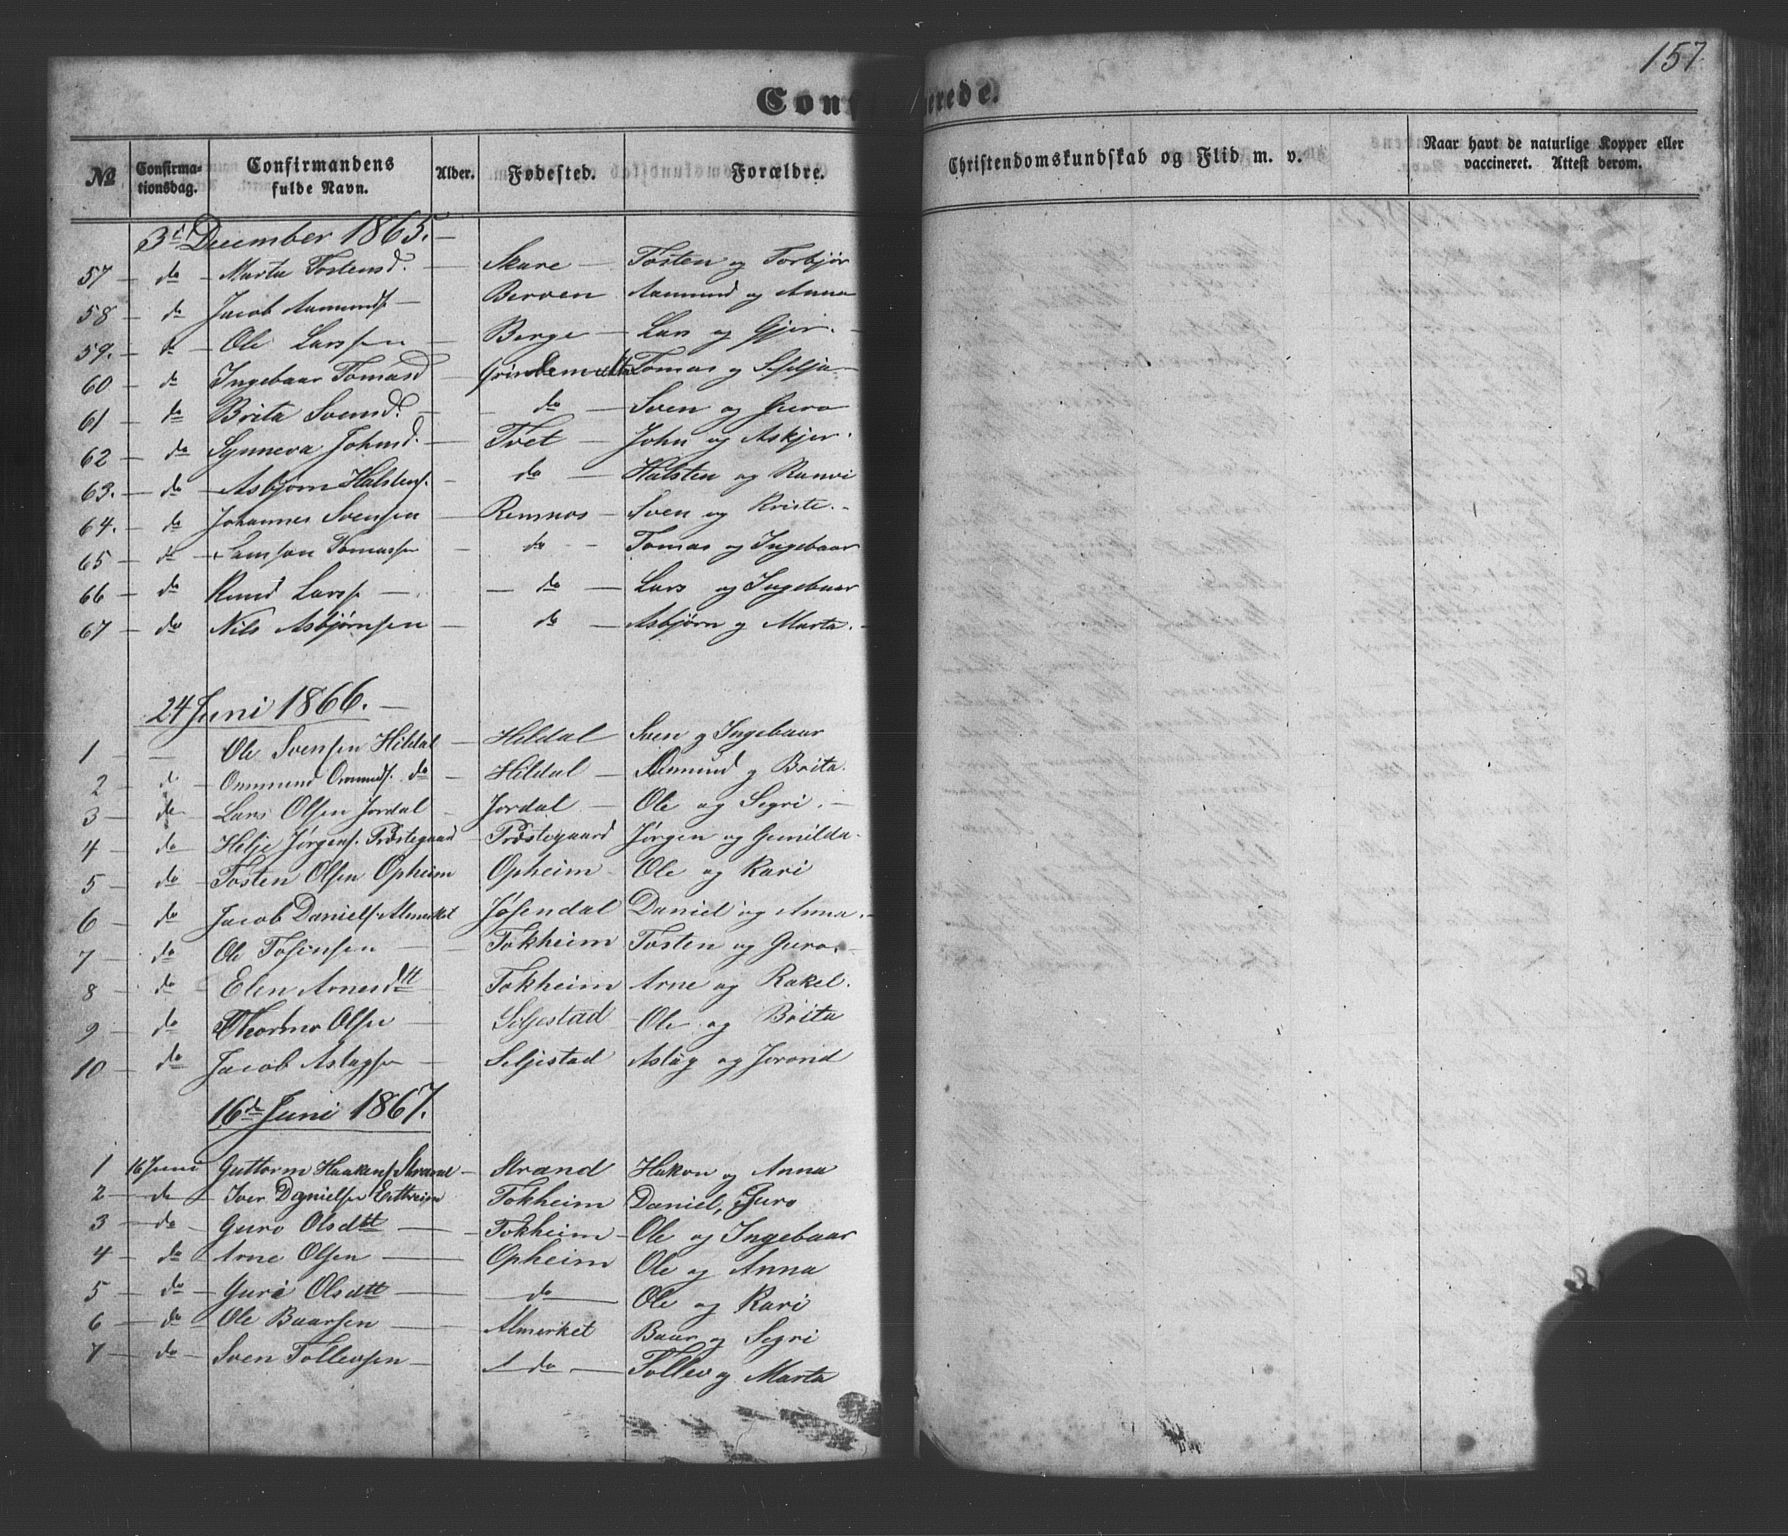 157
Confirmerede.
№ Confirmationsdag. Confirmandens fulde Navn. Alder. Fødested. Forældre. Christendomskundskab og Flid m. v. Naar havt de naturlige Kopper eller vaccineret. Attest derom.
3d December 1865. —
57 — do — Marta Tostensd. — Skare — Tosten og Torbjør
58 — do Jacob Aamundss — Berven Aamund og Anna
59. — do — Ole Larssen — Berge — Lars og Gjer. —
60 — do Ingebaar Tomasd Tomas og Selja —
61 — do Brita Svensd. — do — Sven og Guro
62 — do — Synneva Johnsd. — Tvet — John og Askjer.
63. — do — Asbjørn Halstens. — do — Halsten og Ranvi
64. — do Johannes Svensen — Rensnos — Sven og Kriste. —
65 — do — Samson Tomassen — do — Tomas og Ingebaar
66 — do Knud Larss — — do — Lars og Ingebaar
67 — do Nils Asbjørnsen — do — Asbjørn og Marta. —
24 Juni 1866. —
1 — — Ole Svensen Hildal — Hildal Sven og Ingebaar
2 d Ommund Ommunds. do — Hildal — Aamund og Brita.
3 — do — Lars Olsen Jordal — Jordal — Ole og Segri. —
4 — do — Helje Jørgens. Prøstegaard — Prøstegaard Jørgen og Gunilda.
5 — do — Tosten Olsen Opheim Opheim — Ole og Kari
6 — do Jacob Daniels. Almerket Jøsendal Daniel og Anna. —
7 — do — Ole Tostensen — Tokheim Tosten og Guro. —
8 — do Elen Arnesdtt Tokheim Arne og Rakel.
9 — do — Thormo Olsen — Seljestad — Ole og Brita
10 — do Jacob Aslagsen — Seljestad Aslag og Jorond
16de Juni 1867.
1 16 Juni Guttorm Haakens. Strand — Strand Hakon og Anna
2 — do — Iver Danielsen Eitrheim Tokheim Daniel, Guro
3 — do — Guro Olsdtt — Tokheim — Ole og Ingebaar
4 — do — Arne Olsen — Opheim Ole og Anna
5 — do — Guri Olsdtt — do — Ole og Kari
6 — do — Ole Baarsen — Almerket Baar og Segri
7 — do — Sven Tollevsen — do — Tollev og Marta